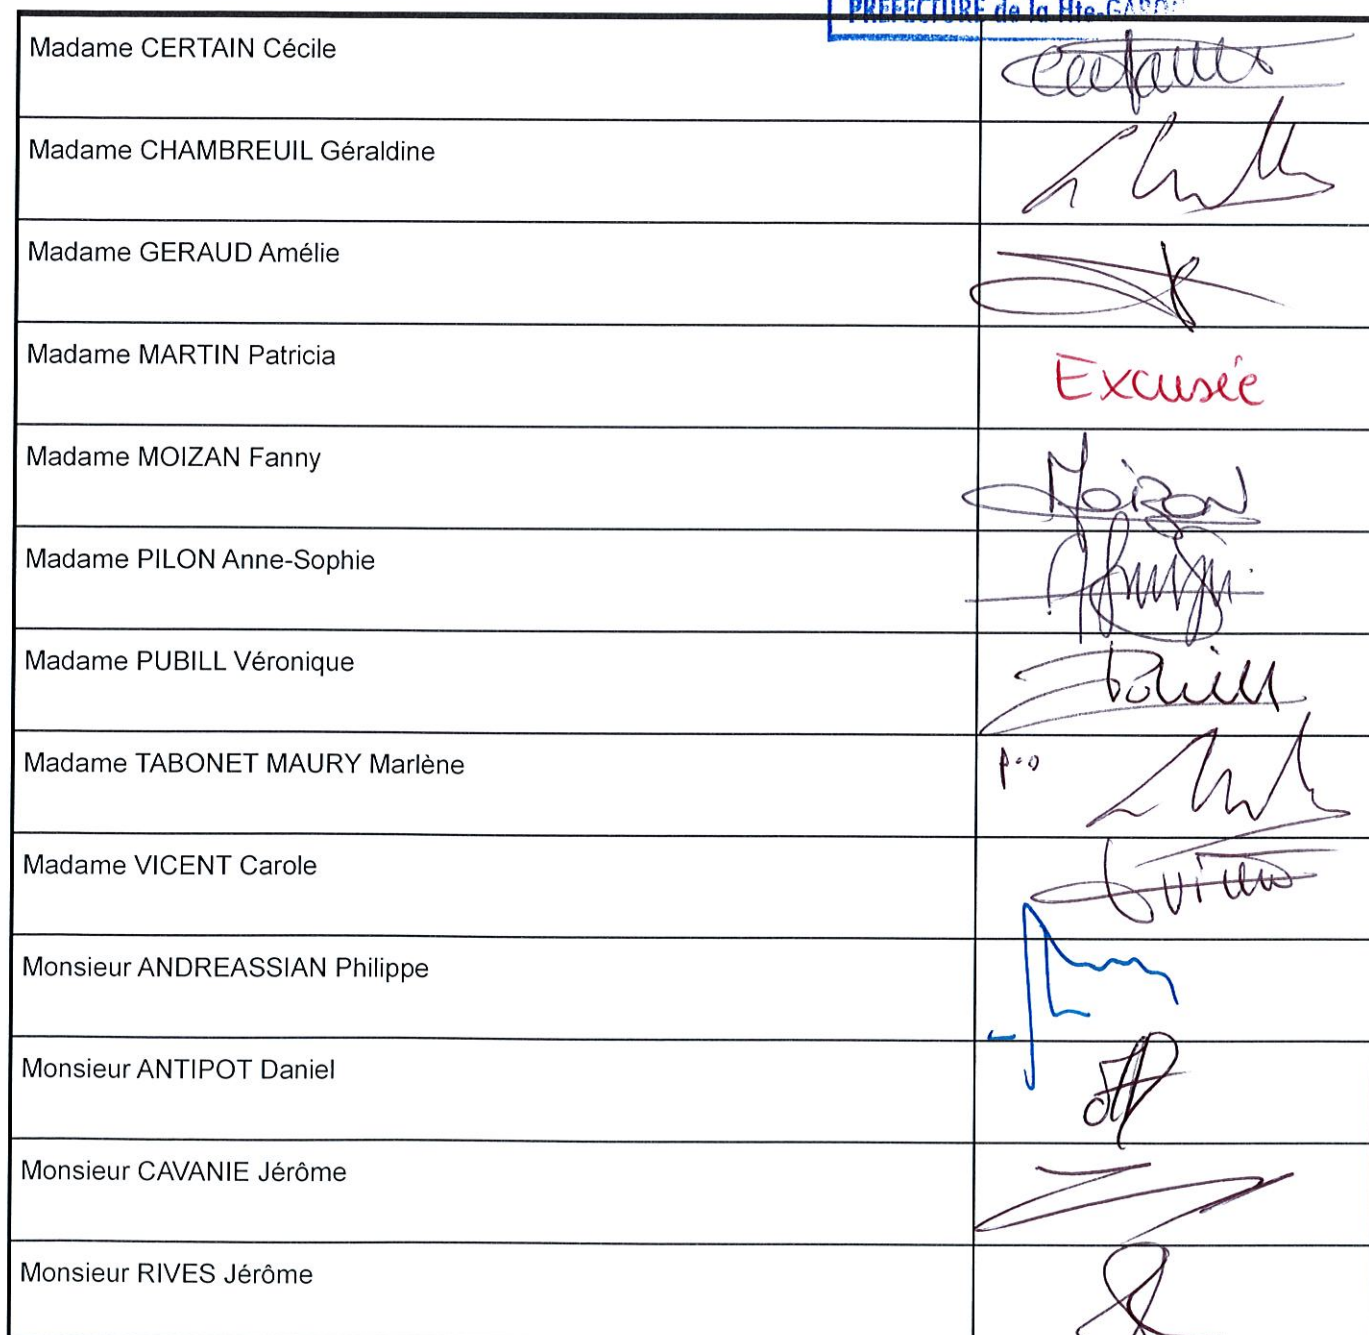 PREFECTURE de la Hte-GARO
Madame CERTAIN Cécile
Madame CHAMBREUIL Géraldine
Madame GERAUD Amélie
Madame MARTIN Patricia
Excusée
Madame MOIZAN Fanny
Madame PILON Anne-Sophie
Madame PUBILL Véronique
Madame TABONET MAURY Marlène
p.o
Madame VICENT Carole
Monsieur ANDREASSIAN Philippe
Monsieur ANTIPOT Daniel
Monsieur CAVANIE Jérôme
Monsieur RIVES Jérôme